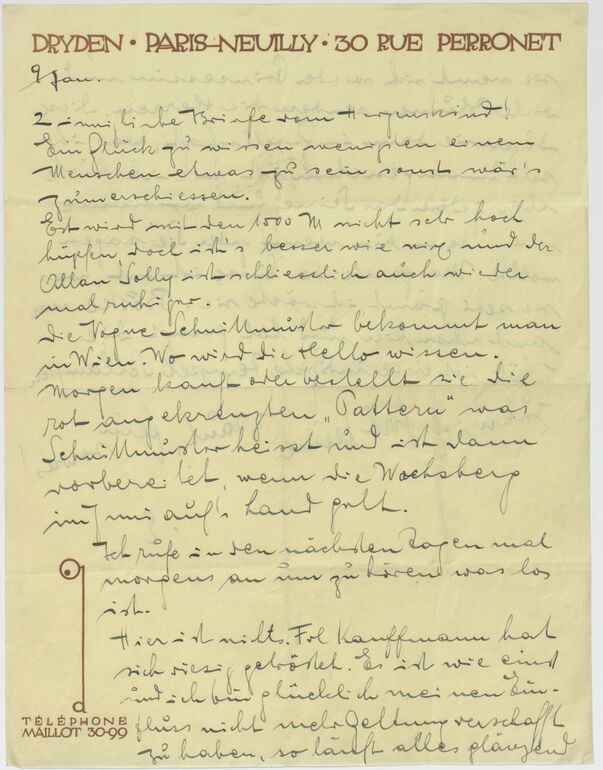 DRYDEN · PARIS-NEUILLY · 30 RUE PERRONET
9 Jan.
2 innigliebe Briefe vom Herzenskind!
Ein Glück zu wissen wenigsten einem
Menschen etwas zu sein sonst wär's
zum erschiessen.
Est wird mit den 1000 M nicht sehr hoch
hupfen, doch ist's besser wie nix und der
Allan Solly ist schliesslich auch wieder
mal ruhiger.
Die Vogue Schnittmuster bekommt man
in Wien. Wo wird die Hello wissen.
Morgen kauft oder bestellt sie die
rot angekreuzten „Pattern" was
Schnittmuster heisst und ist dann
vorbereitet, wenn die Wachsberg
im Juni auf's Land geht.
Ich rufe in den nächsten Tagen mal
morgens an um zu hören was los
ist.
Hier ist nichts. Frl Kauffmann hat
sich riesig getröstet. Es ist wie einst
und ich bin glücklich meinen Ein-
fluss nicht mehr Geltung verschafft
zu haben, so läuft alles glänzend
TÉLÉPHONE
MAILLOT 30-99